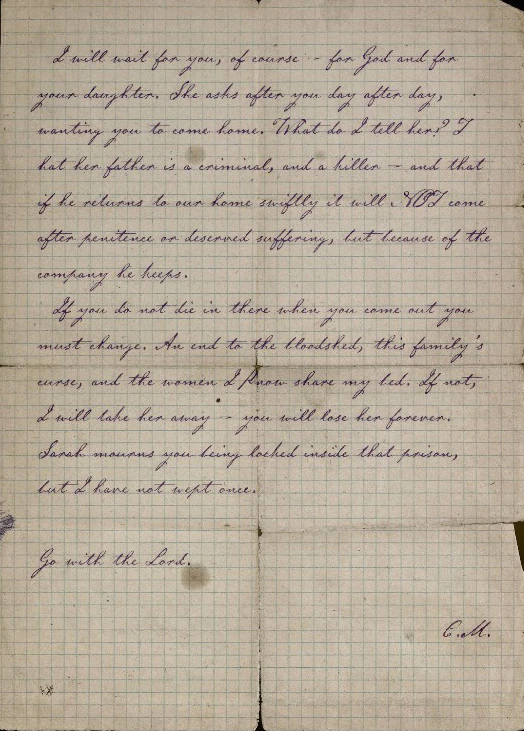 I will wait for you, of course - for God and for
your daughter. She asks after you day after day,
wanting you to come home. What do I tell her? T
hat her father is a criminal, and a killer - and that
if he returns to our home swiftly it will NOT come
after penitence or deserved suffering, but because of the
company he keeps.
If you do not die in there when you come out you
must change. An end to the bloodshed, this family's
curse, and the women I know share my bed. If not,
I will take her away - you will lose her forever.
Sarah mourns you being locked inside that prison,
but I have not wept once.
Go with the Lord.
C.M.